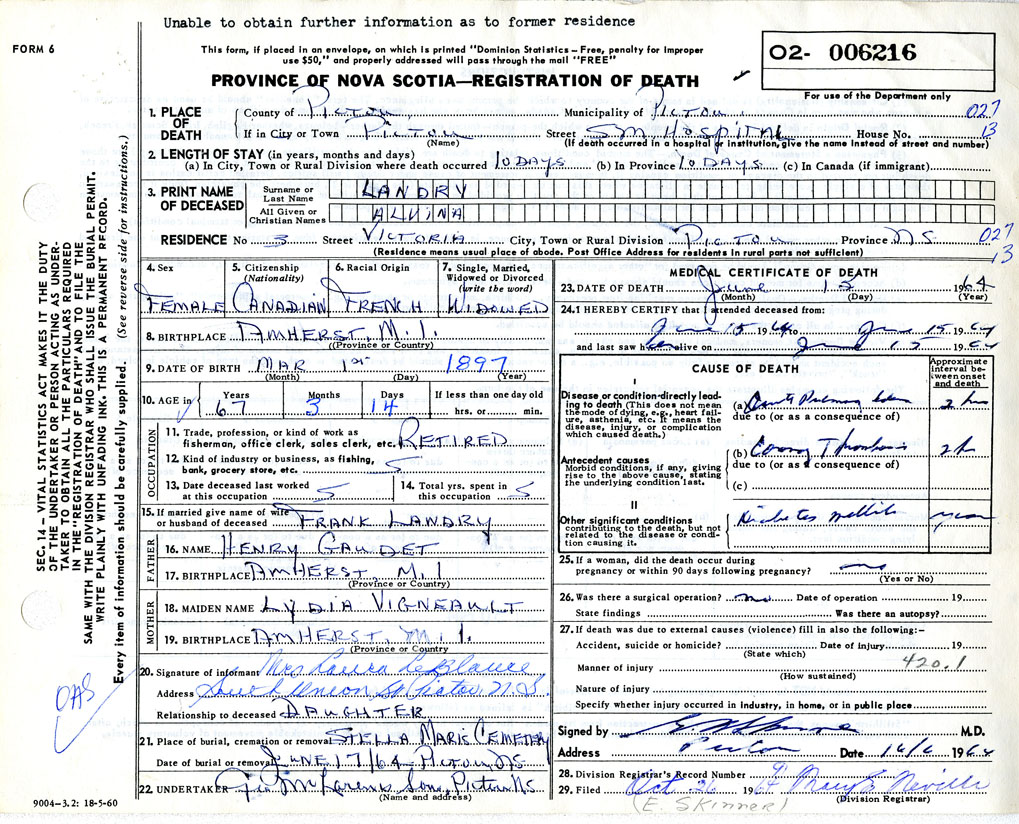 Unable to obtain further information as to former residence
FORM 6
This form, if placed in an envelope, on which is printed "Dominion Statistics – Free, penalty for improper
use $50," and properly addressed will pass through the mail "FREE"
O2- 006216
For use of the Department only
PROVINCE OF NOVA SCOTIA—REGISTRATION OF DEATH
SEC. 14 – VITAL STATISTICS ACT MAKES IT THE DUTY
OF THE UNDERTAKER OR PERSON ACTING AS UNDER-
TAKER TO OBTAIN ALL THE PARTICULARS REQUIRED
IN THE "REGISTRATION OF DEATH" AND TO FILE THE
SAME WITH THE DIVISION REGISTRAR WHO SHALL ISSUE THE BURIAL PERMIT.
WRITE PLAINLY WITH UNFADING INK. THIS IS A PERMANENT RECORD.
Every item of information should be carefully supplied. (See reverse side for instructions.)
OAS
9004-3.2: 18-5-60
1. PLACE OF DEATH
County of PICTOU Municipality of PICTOU 027
If in City or Town PICTOU Street SM HOSPITAL House No. 13
(Name) (If death occurred in a hospital or institution, give the name instead of street and number)
2. LENGTH OF STAY (in years, months and days)
(a) In City, Town or Rural Division where death occurred 10 DAYS (b) In Province 10 DAYS (c) In Canada (if immigrant)
3. PRINT NAME OF DECEASED
Surname or Last Name LANDRY
All Given or Christian Names ALVINA
RESIDENCE No 3 Street VICTORIA City, Town or Rural Division PICTOU Province NS 027
13
(Residence means usual place of abode. Post Office Address for residents in rural parts not sufficient)
4. Sex
FEMALE
5. Citizenship (Nationality)
CANADIAN
6. Racial Origin
FRENCH
7. Single, Married, Widowed or Divorced (write the word)
WIDOWED
8. BIRTHPLACE AMHERST, M.I.
(Province or Country)
9. DATE OF BIRTH MAR 1st 1897
(Month) (Day) (Year)
10. AGE in Years 67 Months 3 Days 14 If less than one day old hrs. or min.
OCCUPATION
11. Trade, profession, or kind of work as
fisherman, office clerk, sales clerk, etc. RETIRED
12. Kind of industry or business, as fishing,
bank, grocery store, etc.
13. Date deceased last worked
at this occupation
14. Total yrs. spent in
this occupation
15. If married give name of wife
or husband of deceased FRANK LANDRY
FATHER
16. NAME HENRY GAUDET
17. BIRTHPLACE AMHERST, M.I
(Province or Country)
MOTHER
18. MAIDEN NAME LYDIA VIGNEAULT
19. BIRTHPLACE AMHERST, M.I.
(Province or Country)
20. Signature of informant Mrs Laura LeBlanc
Address South Union St Pictou, N.S.
Relationship to deceased DAUGHTER
21. Place of burial, cremation or removal STELLA MARIS CEMETERY
Date of burial or removal JUNE 17/64 - PICTOU, NS
22. UNDERTAKER Sons, Pictou NS
(Name and address)
MEDICAL CERTIFICATE OF DEATH
23. DATE OF DEATH June 15 1964
(Month) (Day) (Year)
24. I HEREBY CERTIFY that I attended deceased from:
June 15 1964 to June 15 1964
and last saw h alive on June 15 1964
CAUSE OF DEATH
Approximate interval between onset and death
I
Disease or condition directly leading to death (This does not mean the mode of dying, e.g., heart failure, asthenia, etc. It means the disease, injury, or complication which caused death.)
(a) Acute Pulmonary Edema 2 hrs
due to (or as a consequence of)
Antecedent causes
Morbid conditions, if any, giving rise to the above cause, stating the underlying condition last.
(b) Coronary Thrombosis 2 h
due to (or as a consequence of)
(c)
II
Other significant conditions
contributing to the death, but not related to the disease or condition causing it.
Diabetes mellitus years
25. If a woman, did the death occur during
pregnancy or within 90 days following pregnancy? no
(Yes or No)
26. Was there a surgical operation? no Date of operation 19
State findings Was there an autopsy?
27. If death was due to external causes (violence) fill in also the following:–
Accident, suicide or homicide? Date of injury 19
(State which)
420.1
Manner of injury
(How sustained)
Nature of injury
Specify whether injury occurred in industry, in home, or in public place
Signed by M.D.
Address Pictou Date 16/6 1964
28. Division Registrar's Record Number
29. Filed Oct 26 1964 Mary E Neville
(E. SKINNER) (Division Registrar)